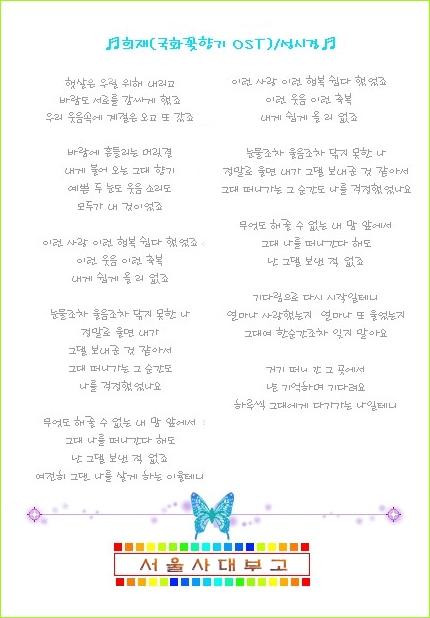 ♬희재(국화꽃향기 OST)/성시경♬
햇살은 우릴 위해 내리고
바람도 서로를 감싸게 했죠
우리 웃음속에 계절은 오고 또 갔죠
바람에 흔들리는 머릿결
내게 불어 오는 그대 향기
예쁜 두 눈도 웃음 소리도
모두가 내 것이었죠
이런 사랑 이런 행복 쉽다 했었죠
이런 웃음 이런 축복
내게 쉽게 올 리 없죠
눈물조차 울음조차 닦지 못한 나
정말로 울면 내가
그댈 보내준 것 같아서
그대 떠나가는 그 순간도
나를 걱정했었나요
무엇도 해줄 수 없는 내 맘 앞에서
그대 나를 떠나간다 해도
난 그댈 보낸 적 없죠
여전히 그댄 나를 살게 하는 이율테니
이런 사랑 이런 행복 쉽다 했었죠
이런 웃음 이런 축복
내게 쉽게 올 리 없죠
눈물조차 울음조차 닦지 못한 나
정말로 울면 내가 그댈 보내준 것 같아서
그대 떠나가는 그 순간도 나를 걱정했었나요
무엇도 해줄 수 없는 내 맘 앞에서
그대 나를 떠나간다 해도
난 그댈 보낸 적 없죠
기다림으로 다시 시작일테니
얼마나 사랑했는지 얼마나 또 울었는지
그대여 한순간조차 잊지 말아요
거기 떠나 간 그 곳에서
날 기억하며 기다려요
하루씩 그대에게 다가가는 나일테니
서울사대부고